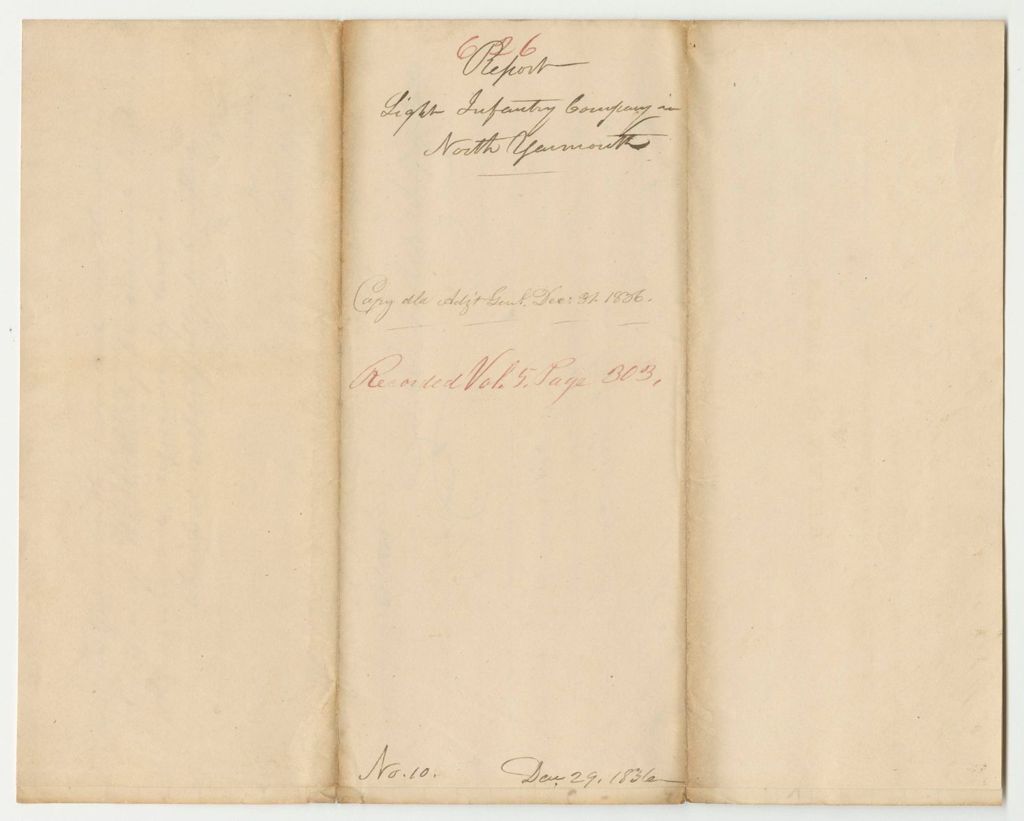 626
Report
Light Infantry Company in
North Yarmouth
Copy dld Adjt Genl. Dec: 31. 1836.
Recorded Vol. 5. Page 303.
No. 10. Dec. 29. 1836